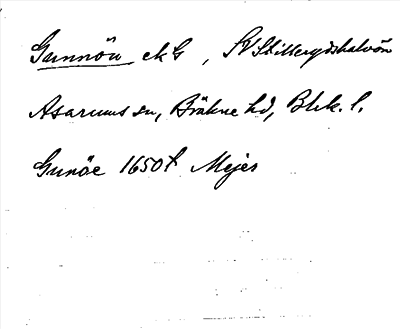 Gunnön ekG, SV Stillerydshalvön
Asarums sn, Bräkne hd, Blek. l.
Gunöe 1650t Mejer